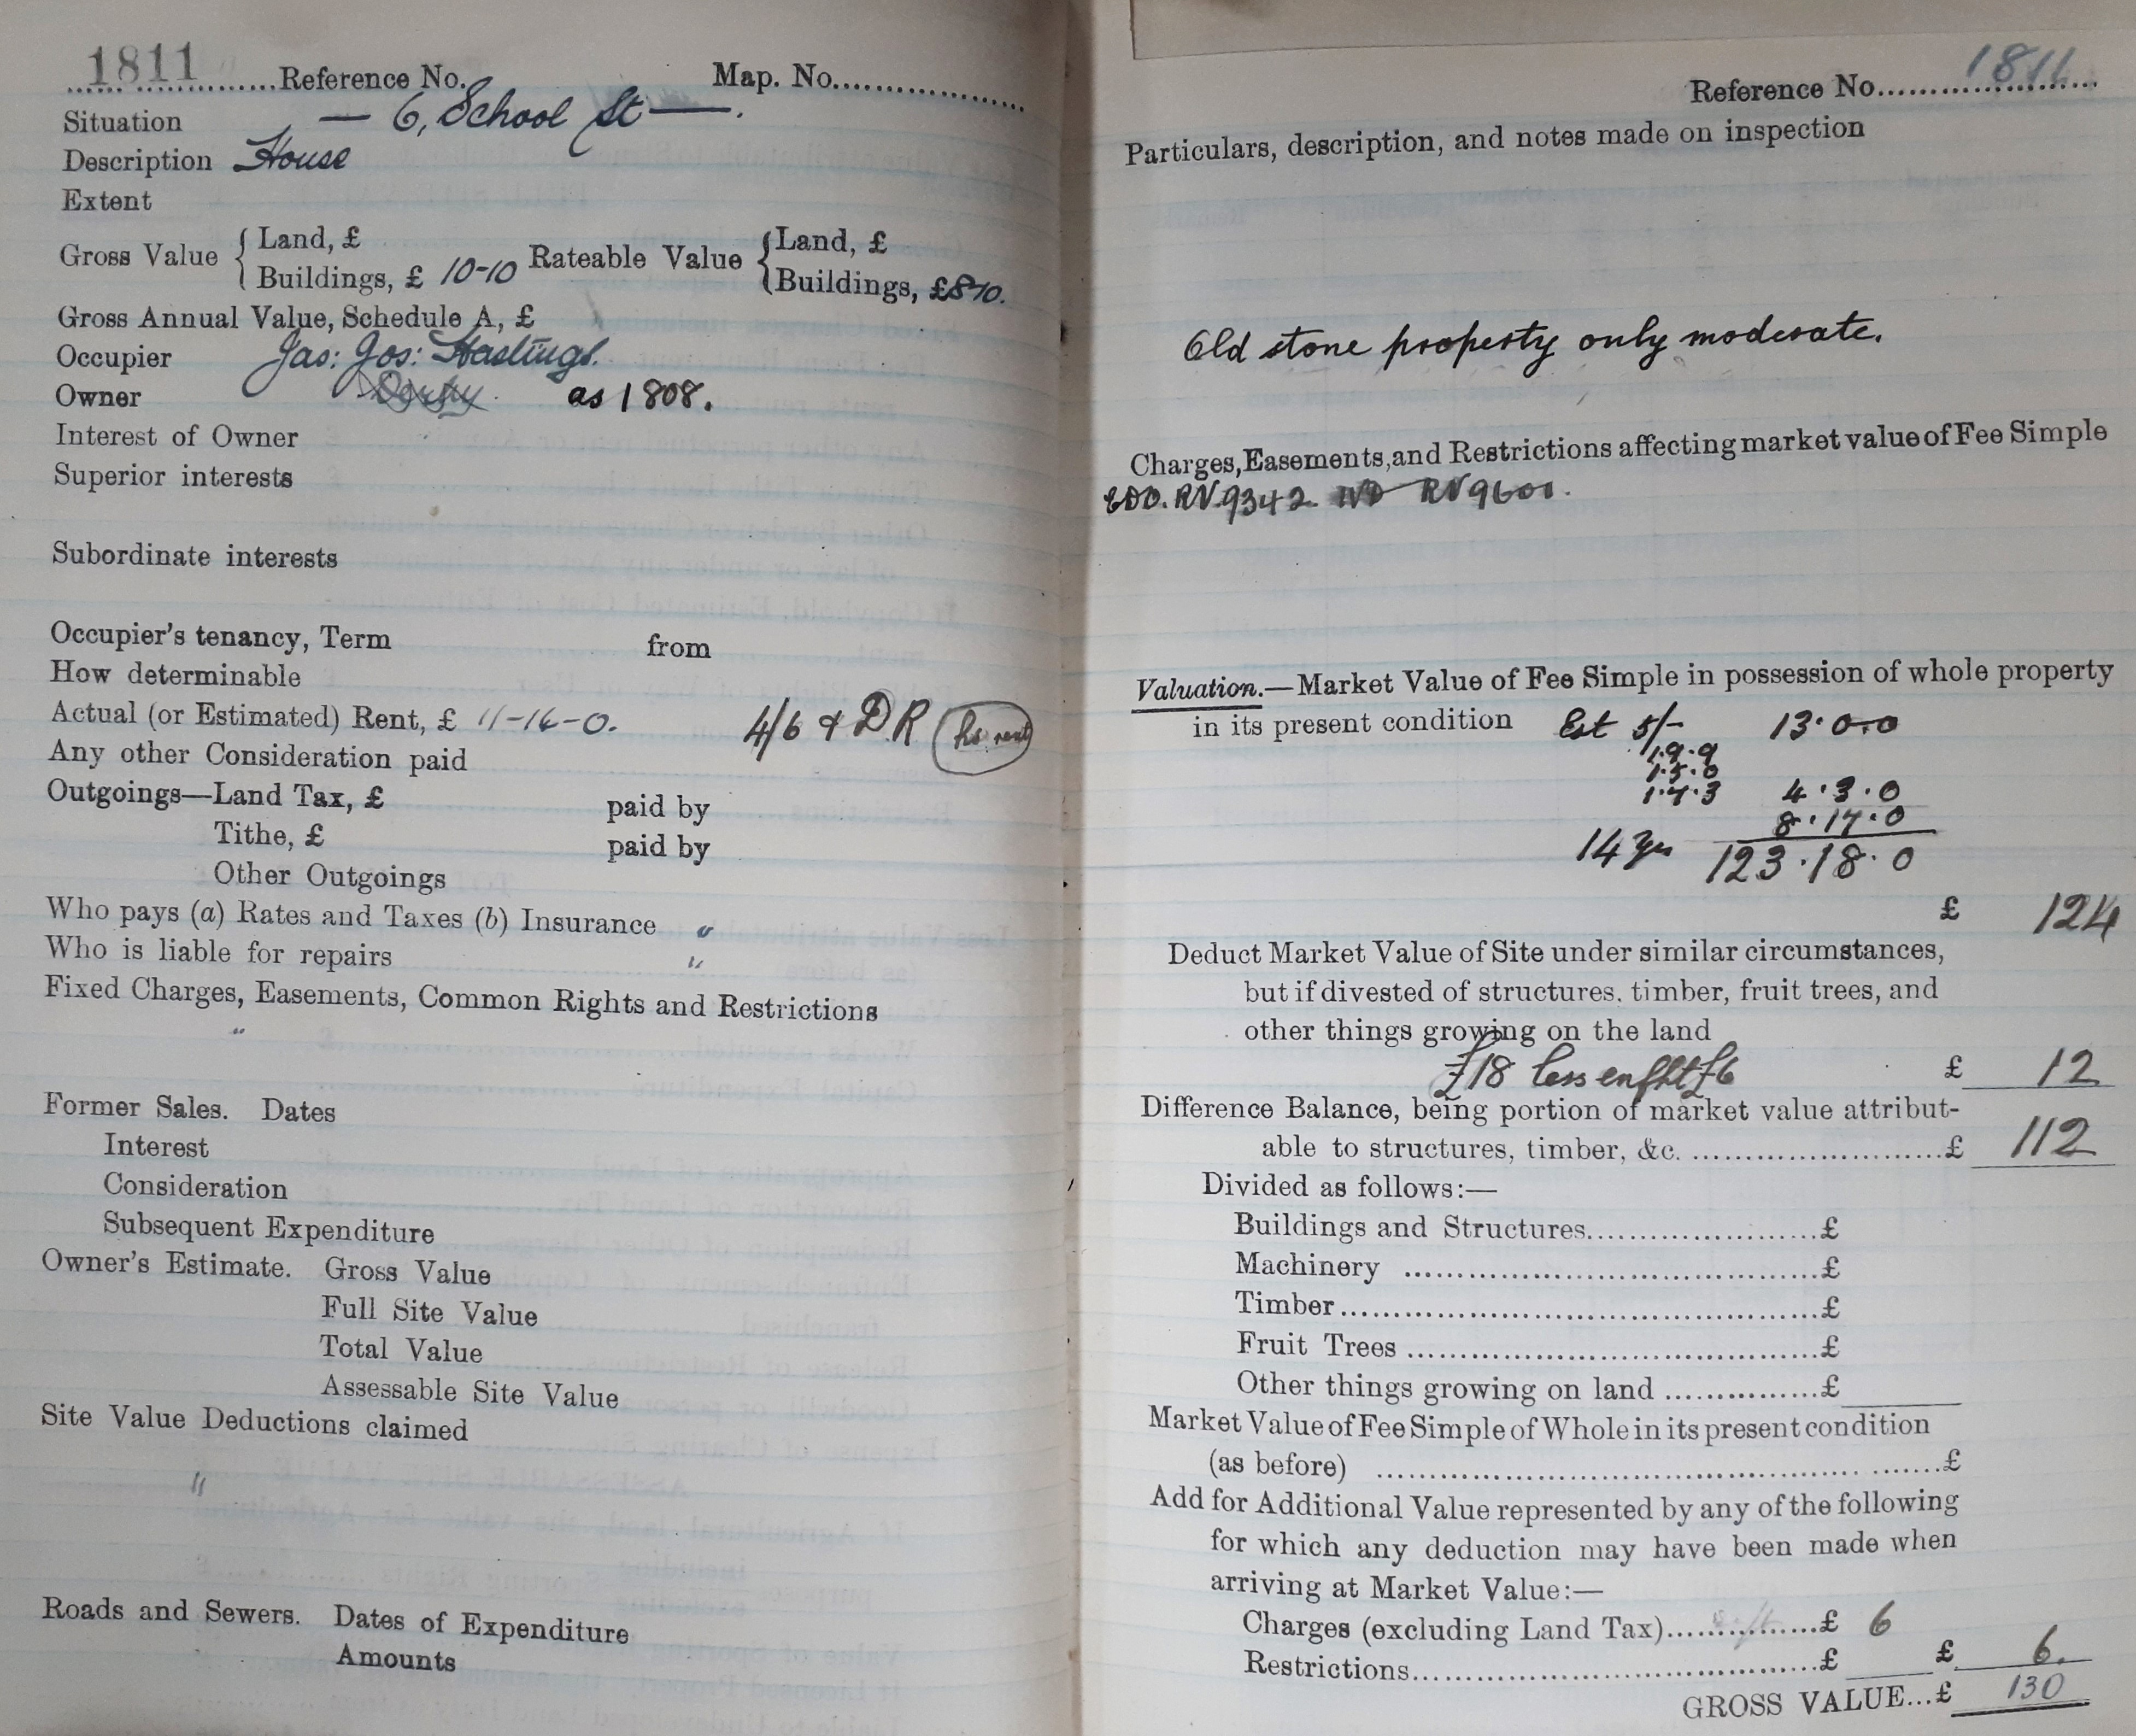 1811 Reference No. Map. No.
Situation — 6, School St —.
Description House
Extent
Gross Value { Land, £ Rateable Value { Land, £
Buildings, £ 10-10 Buildings, £ 8-10.
Gross Annual Value, Schedule A, £
Occupier Jas: Jos: Hastings.
Owner Derby as 1808.
Interest of Owner
Superior interests
Subordinate interests
Occupier's tenancy, Term from
How determinable
Actual (or Estimated) Rent, £ 11-16-0. 4/6 & DR
Any other Consideration paid
Outgoings—Land Tax, £ paid by
Tithe, £ paid by
Other Outgoings
Who pays (a) Rates and Taxes (b) Insurance "
Who is liable for repairs "
Fixed Charges, Easements, Common Rights and Restrictions
"
Former Sales. Dates
Interest
Consideration
Subsequent Expenditure
Owner's Estimate. Gross Value
Full Site Value
Total Value
Assessable Site Value
Site Value Deductions claimed
"
Roads and Sewers. Dates of Expenditure
Amounts
Reference No. 1811
Particulars, description, and notes made on inspection
Old stone property only moderate.
Charges, Easements, and Restrictions affecting market value of Fee Simple
RV. 9342. RV 9601.
Valuation.—Market Value of Fee Simple in possession of whole property
in its present condition Est 5/- 13.0.0
1.9.9
1.5.0
4.3.0
8.17.0
14 yrs 123.18.0
£ 124
Deduct Market Value of Site under similar circumstances,
but if divested of structures, timber, fruit trees, and
other things growing on the land
£18 less enfht £6 £ 12
Difference Balance, being portion of market value attribut-
able to structures, timber, &c. £ 112
Divided as follows:—
Buildings and Structures £
Machinery £
Timber £
Fruit Trees £
Other things growing on land £
Market Value of Fee Simple of Whole in its present condition
(as before) £
Add for Additional Value represented by any of the following
for which any deduction may have been made when
arriving at Market Value:—
Charges (excluding Land Tax) £ 6
Restrictions £ £ 6.
GROSS VALUE...£ 130